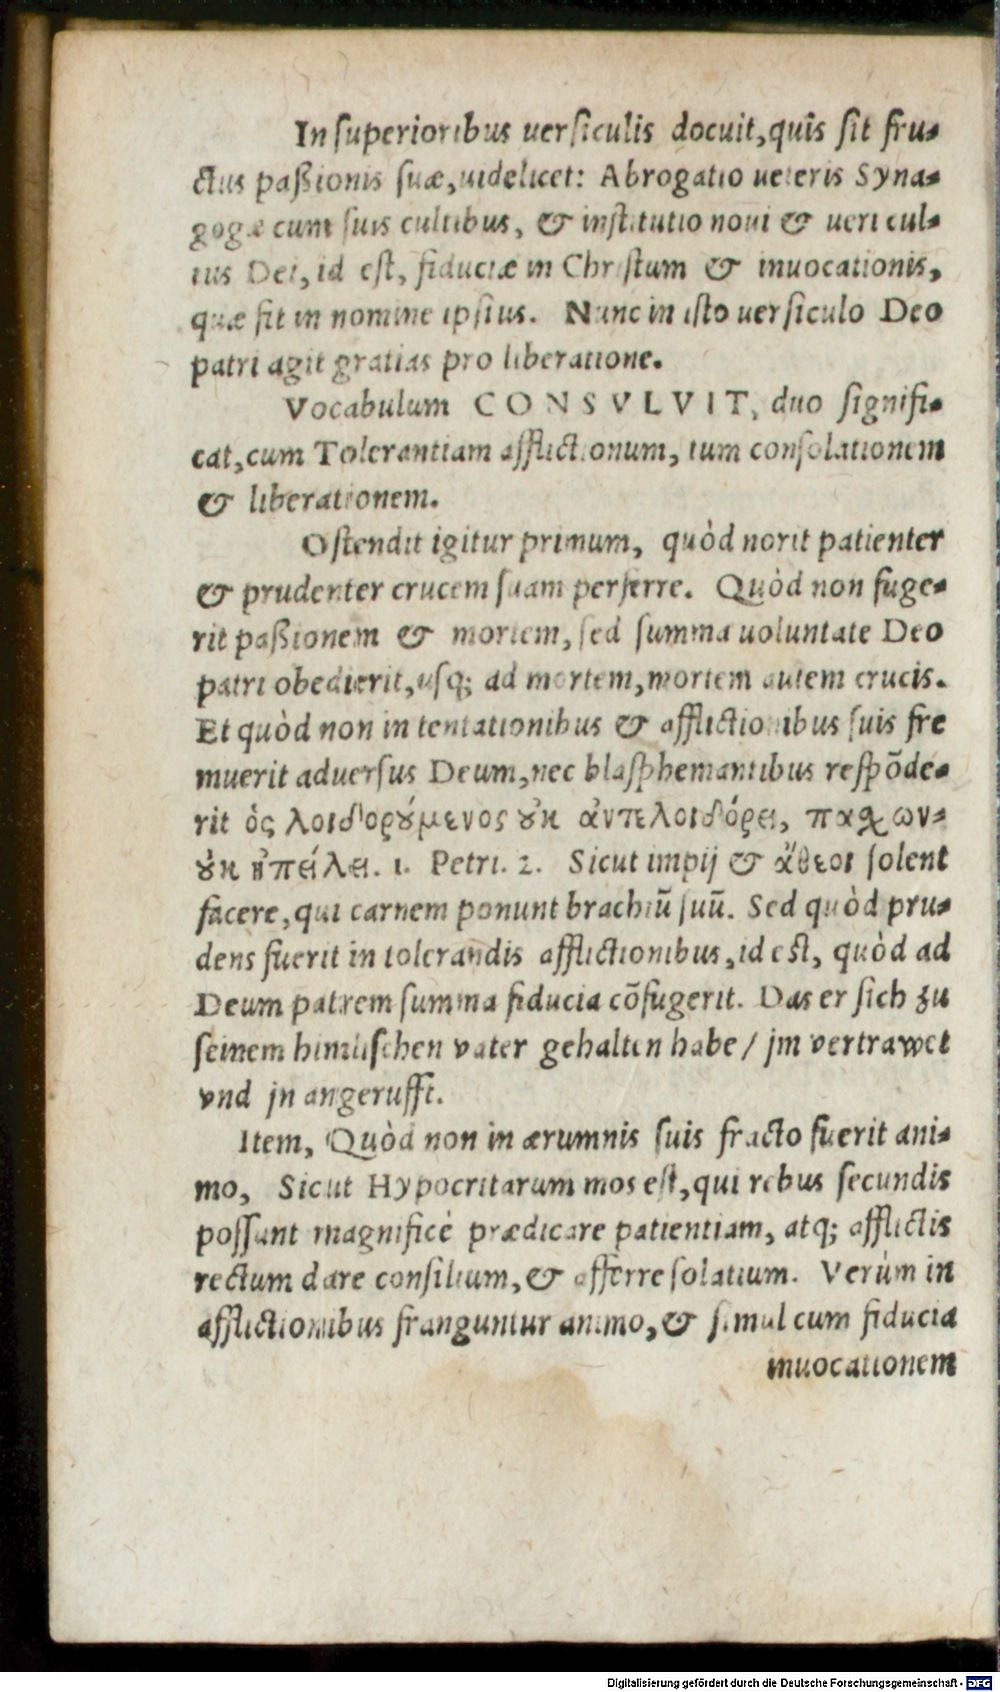 In ſuperioribus uerſiculis docuit, quis ſit fru-
ctus paßionis ſuæ, uidelicet: Abrogatio ueteris Syna-
gogæ cum ſuis cultibus, & inſtitutio noui & ueri cul-
tus Dei, id eſt, fiduciæ in Chriſtum & inuocationis,
quæ fit in nomine ipſius. Nunc in iſto uerſiculo Deo
patri agit gratias pro liberatione.
Vocabulum CONSVLVIT, duo ſignifi-
cat, cum Tolerantiam afflictionum, tum conſolationem
& liberationem.
Oſtendit igitur primum, quòd norit patienter
& prudenter crucem ſuam perferre. Quòd non fuge-
rit paßionem & mortem, ſed ſumma uoluntate Deo
patri obedierit, uſq; ad mortem, mortem autem crucis.
Et quòd non in tentationibus & afflictionibus ſuis fre
muerit aduerſus Deum, nec blaſphemantibus reſpõde-
rit ὁς λοιδορούμενος οὐκ ἀντελοιδόρει, πάσχων
οὐκ ἠπείλει. 1. Petri. 2. Sicut impij & ἄθεοι ſolent
facere, qui carnem ponunt brachiũ ſuũ. Sed quòd pru-
dens fuerit in tolerandis afflictionibus, id eſt, quòd ad
Deum patrem ſumma fiducia cõfugerit. Das er ſich zu
ſeinem himliſchen vater gehalten habe / jm vertrawet
vnd jn angerufft.
Item, Quòd non in ærumnis ſuis fracto fuerit ani-
mo, Sicut Hypocritarum mos eſt, qui rebus ſecundis
poſſunt magnificè prædicare patientiam, atq; afflictis
rectum dare conſilium, & afferre ſolatium. Verùm in
afflictionibus franguntur animo, & ſimul cum fiducia
inuocationem
Digitalisierung gefördert durch die Deutsche Forschungsgemeinschaft - DFG